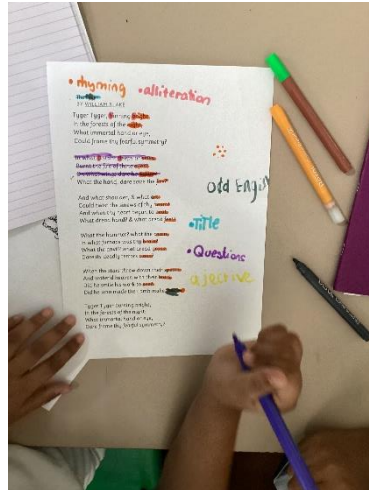 • rhyming • alliteration
BY WILLIAM BLAKE
Tyger Tyger, burning bright,
In the forests of the night;
What immortal hand or eye,
Could frame thy fearful symmetry?
Odd English
On what wings dare he aspire?
What the hand, dare seize the fire?
And what shoulder, & what art,
Could twist the sinews of thy heart?
And when thy heart began to beat,
What dread hand? & what dread feet?
• Title
What the hammer? what the chain,
In what furnace was thy brain?
What the anvil? what dread grasp,
• Questions
When the stars threw down their spears
ajective
And water'd heaven with their tears:
Did he smile his work to see?
Did he who made the Lamb make
Tyger Tyger burning bright,
In the forests of the night:
What immortal hand or eye,
Dare frame thy fearful symmetry?